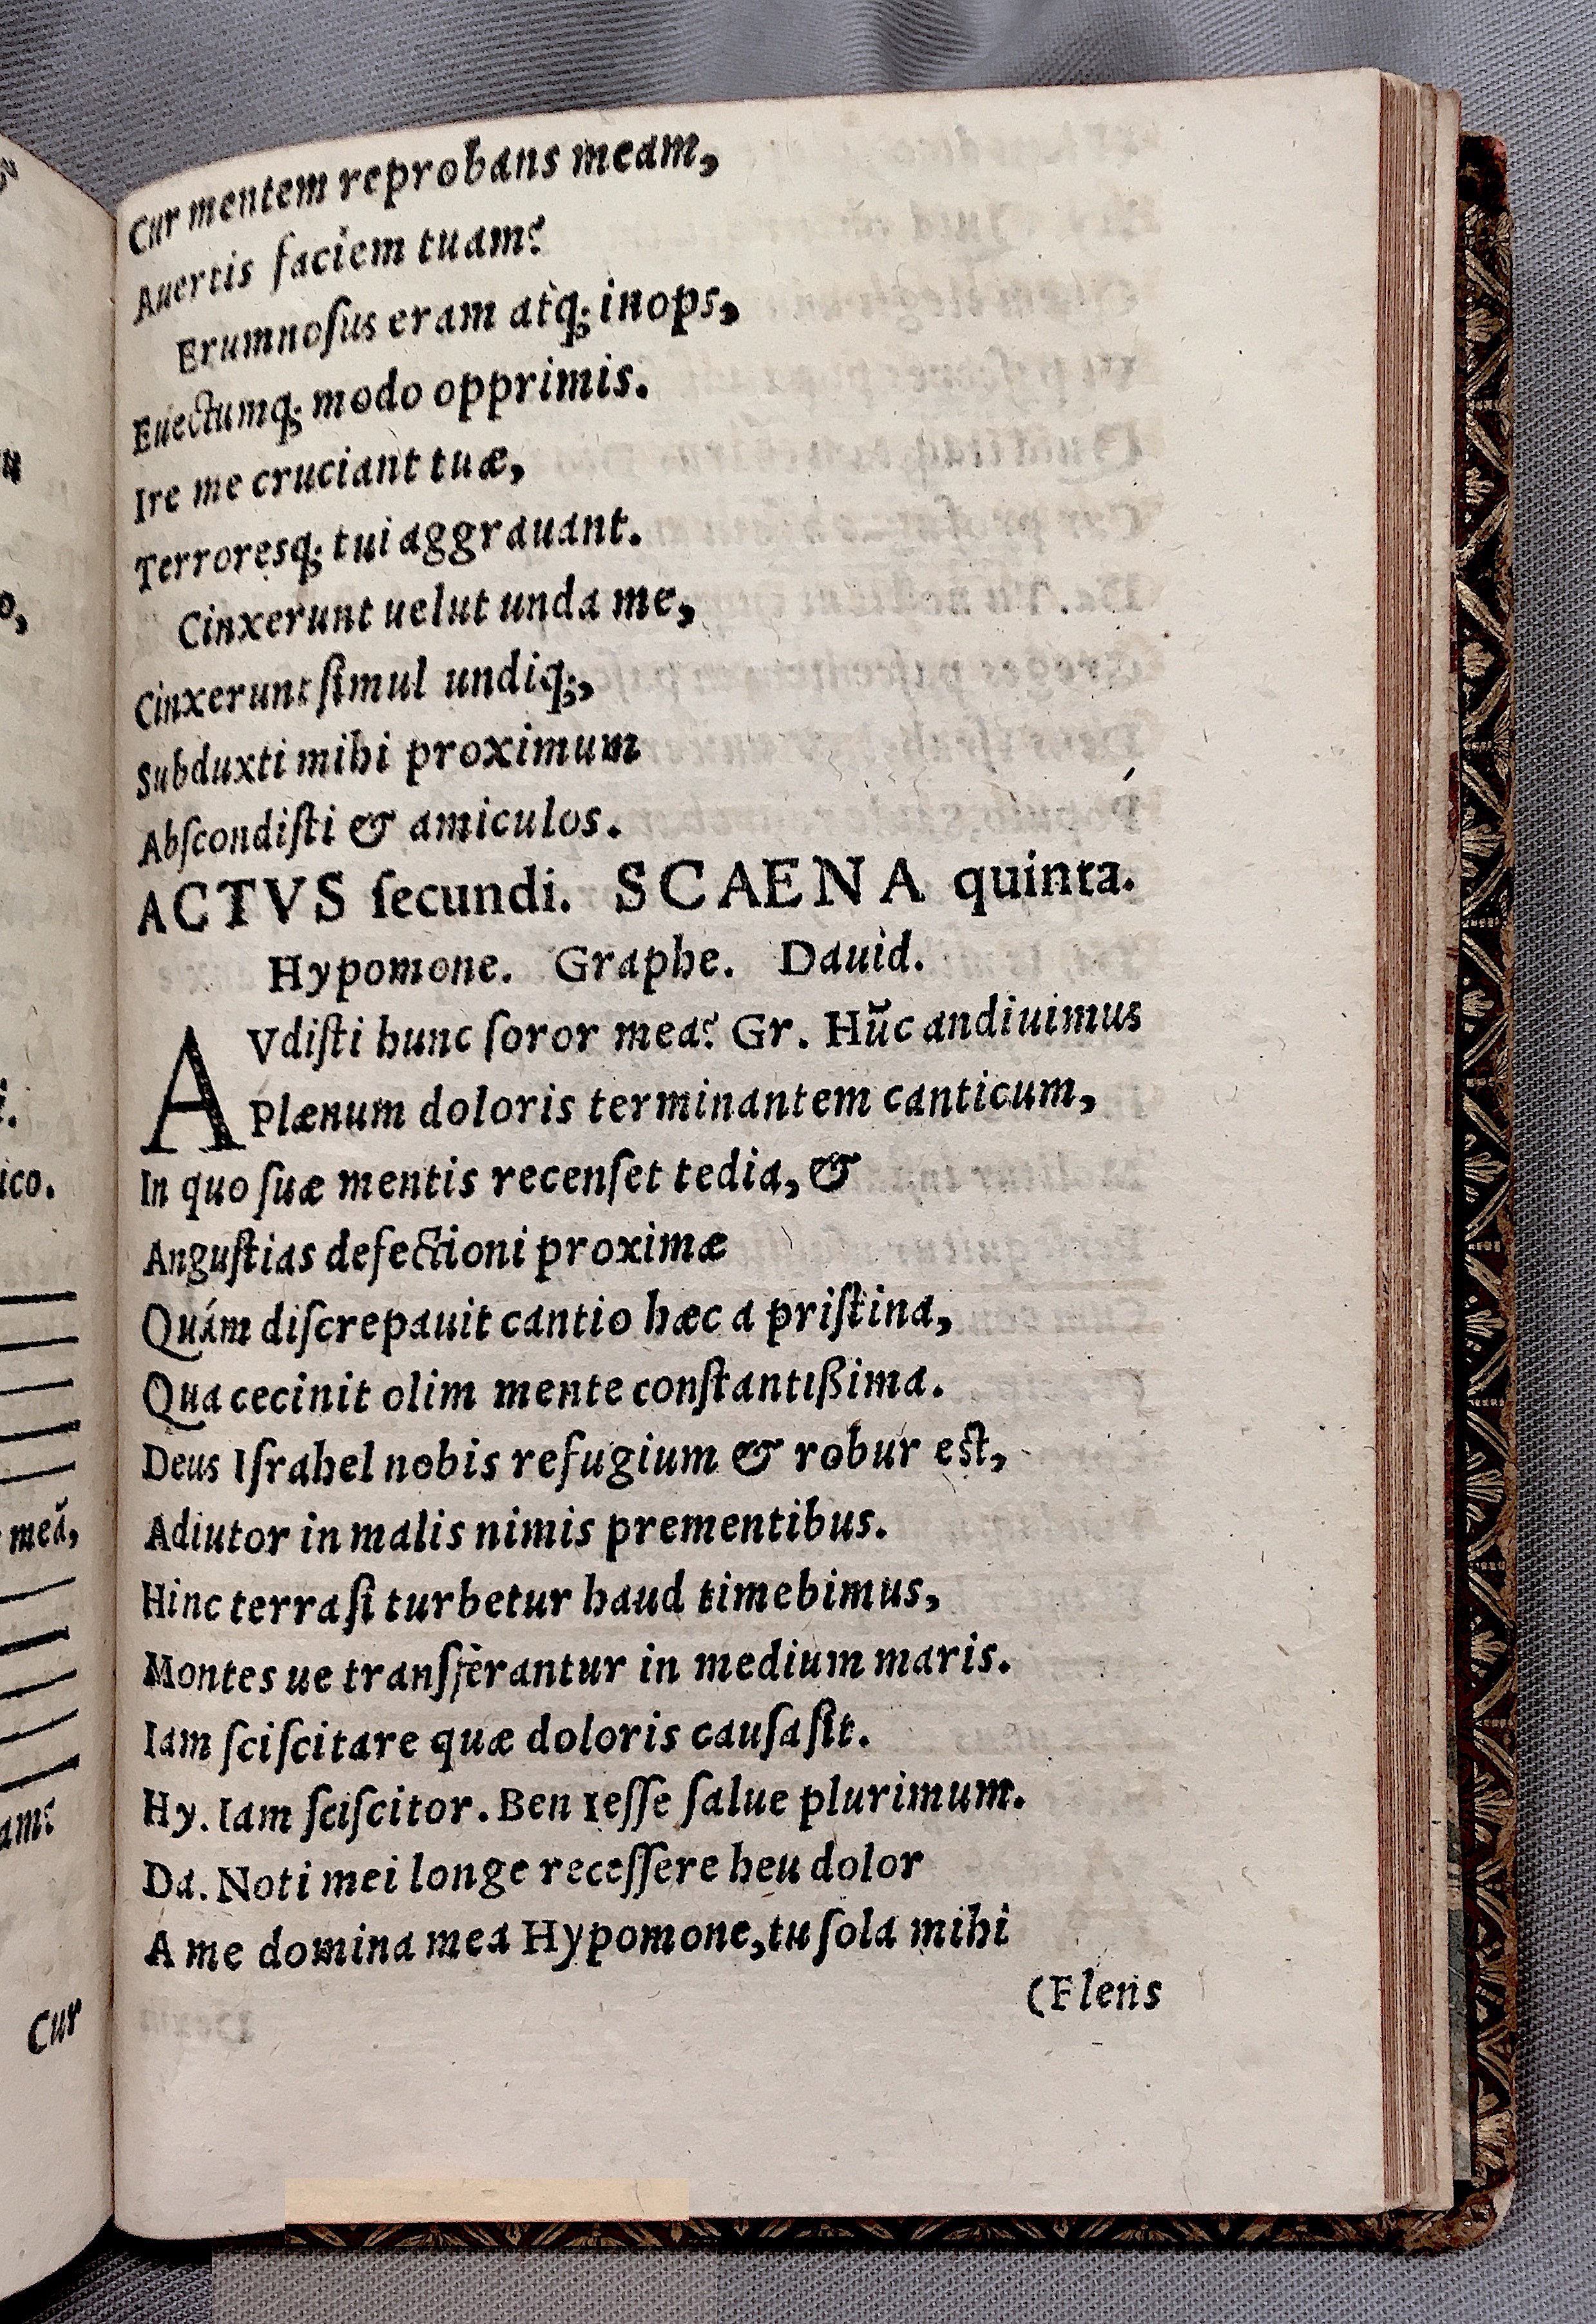 Cur mentem reprobans meam,
Auertis faciem tuam?
Erumnoſus eram atq; inops,
Euectumq; modo opprimis.
Ire me cruciant tuæ,
Terroresq; tui aggrauant.
Cinxerunt uelut unda me,
Cinxerunt ſimul undiq;,
Subduxti mihi proximum
Abſcondiſti & amiculos.
ACTVS ſecundi. SCAENA quinta.
Hypomone. Graphe. Dauid.
AVdiſti hunc ſoror mea? Gr. Hūc andiuimus
Plænum doloris terminantem canticum,
In quo ſuæ mentis recenſet tedia, &
Anguſtias defectioni proximæ
Quám diſcrepauit cantio hæc a priſtina,
Qua cecinit olim mente conſtantißima.
Deus Iſrahel nobis refugium & robur eſt,
Adiutor in malis nimis prementibus.
Hinc terra ſi turbetur haud timebimus,
Montes ue transferantur in medium maris.
Iam ſciſcitare quæ doloris cauſa ſit.
Hy. Iam ſciſcitor. Ben Ieſſe ſalue plurimum.
Da. Noti mei longe receſſere heu dolor
A me domina mea Hypomone, tu ſola mihi
(Flens
ico.
meā,
Cur